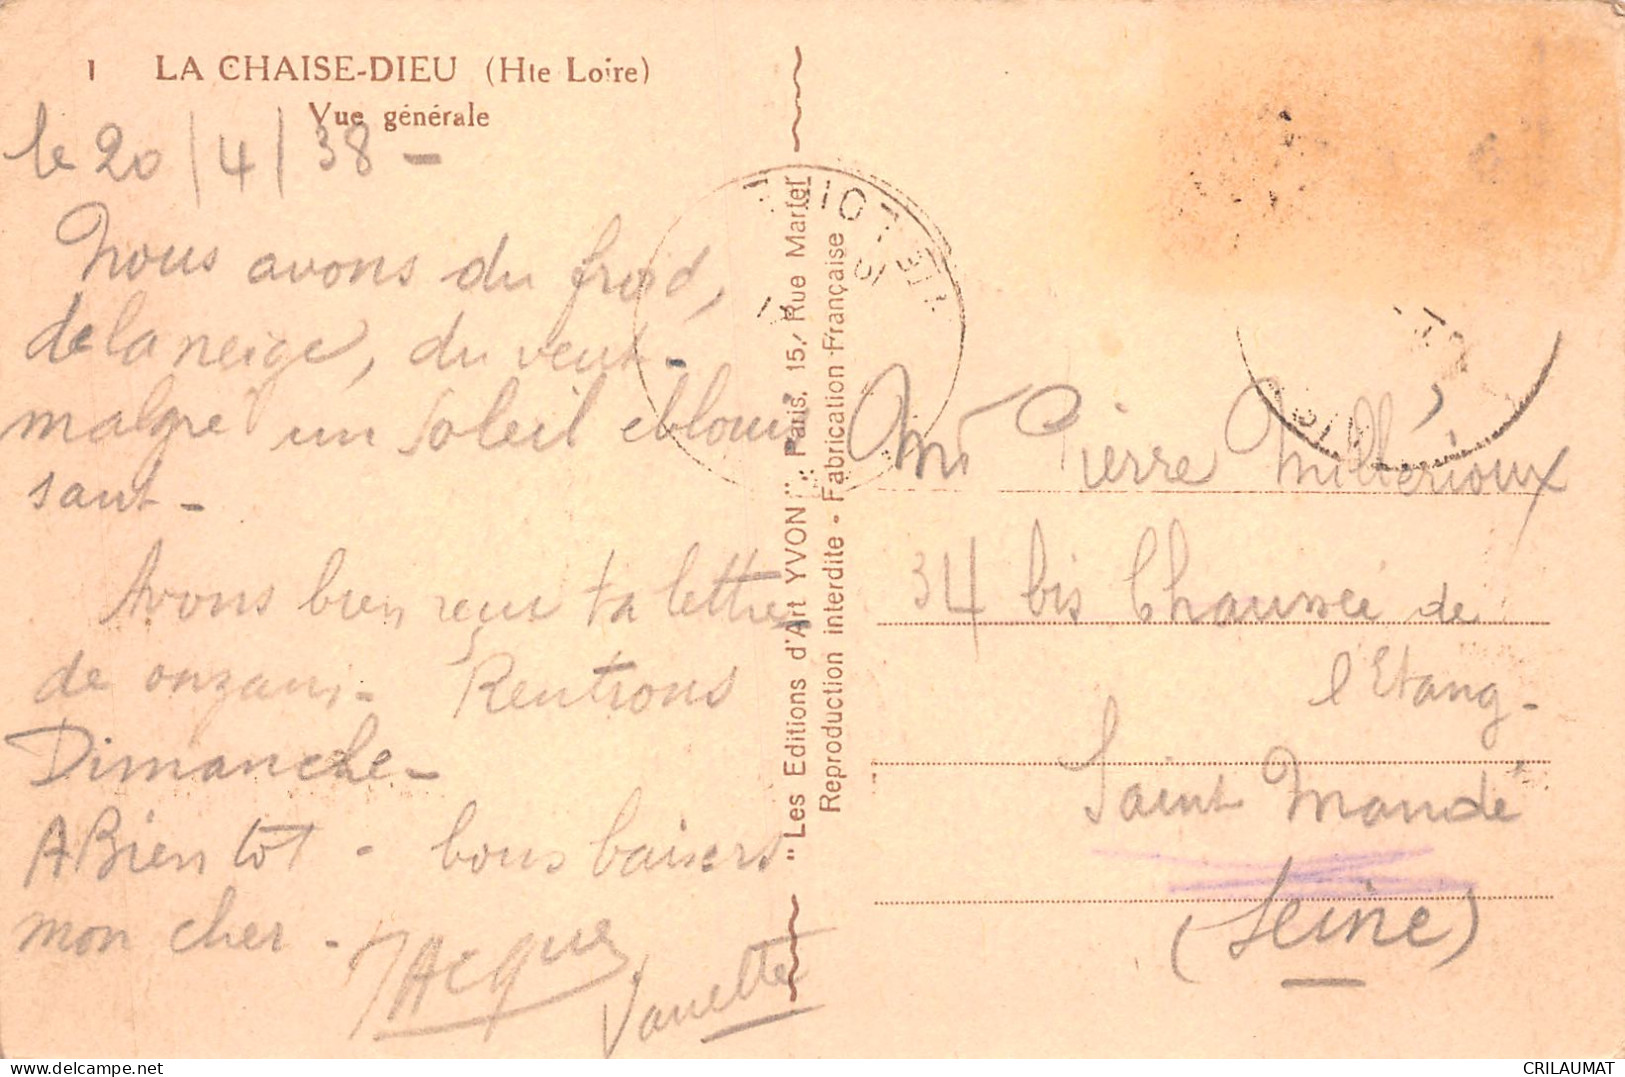 1 LA CHAISE-DIEU (Hte Loire)
Vue générale
le 20/4/38 -
Nous avons du froid,
de la neige, du vent -
malgré un soleil eblouis
sant -
Avons bien reçu ta lettre
de onzain - Rentrons
Dimanche -
A Bientot - bons baisers
mon cher -
JAcque
Vanette
"Les Editions d'Art YVON" Paris, 15, Rue Martel
Reproduction interdite - Fabrication Française
Mr Pierre Millerioux
34 bis Chaussée de
l'Etang -
Saint Mandé
(Seine)
delcampe.net
CRILAUMAT